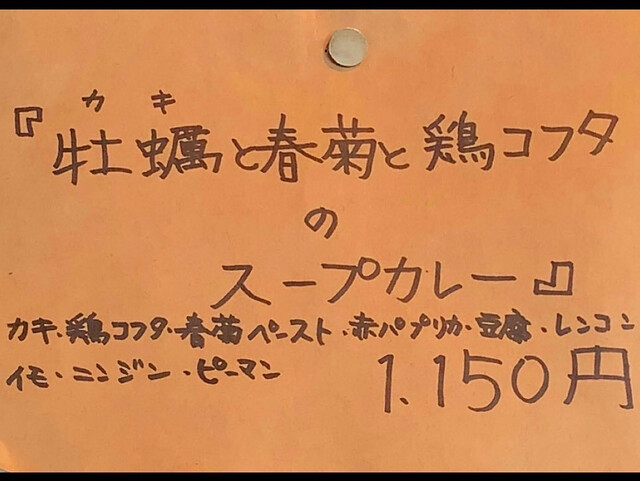 カキ
『牡蠣と春菊と鶏コフタ
の
スープカレー』
カキ・鶏コフタ・春菊ペースト・赤パプリカ・豆腐・レンコン
イモ・ニンジン・ピーマン 1.150円